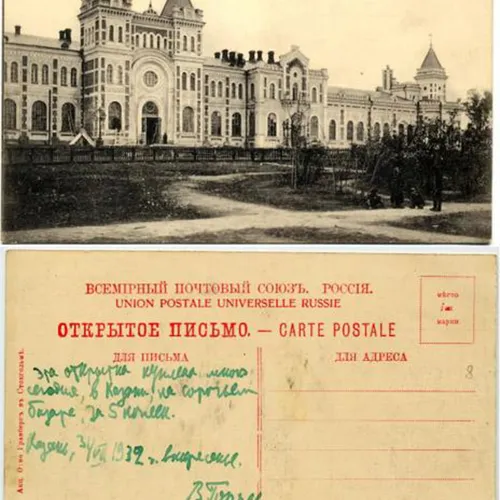 ВСЕМІРНЫЙ ПОЧТОВЫЙ СОЮЗЪ. РОССІЯ.
UNION POSTALE UNIVERSELLE RUSSIE
ОТКРЫТОЕ ПИСЬМО. — CARTE POSTALE
мѣсто
для
марки
ДЛЯ ПИСЬМА
ДЛЯ АДРЕСА
8
Эта открытка куплена мною
сегодня, в Казани, на сорочьем
базаре, за 5 копеек.
Казань, VII 1932 г. воскресенье.
Акц. О-ва Гранбергъ въ Стокгольмѣ.